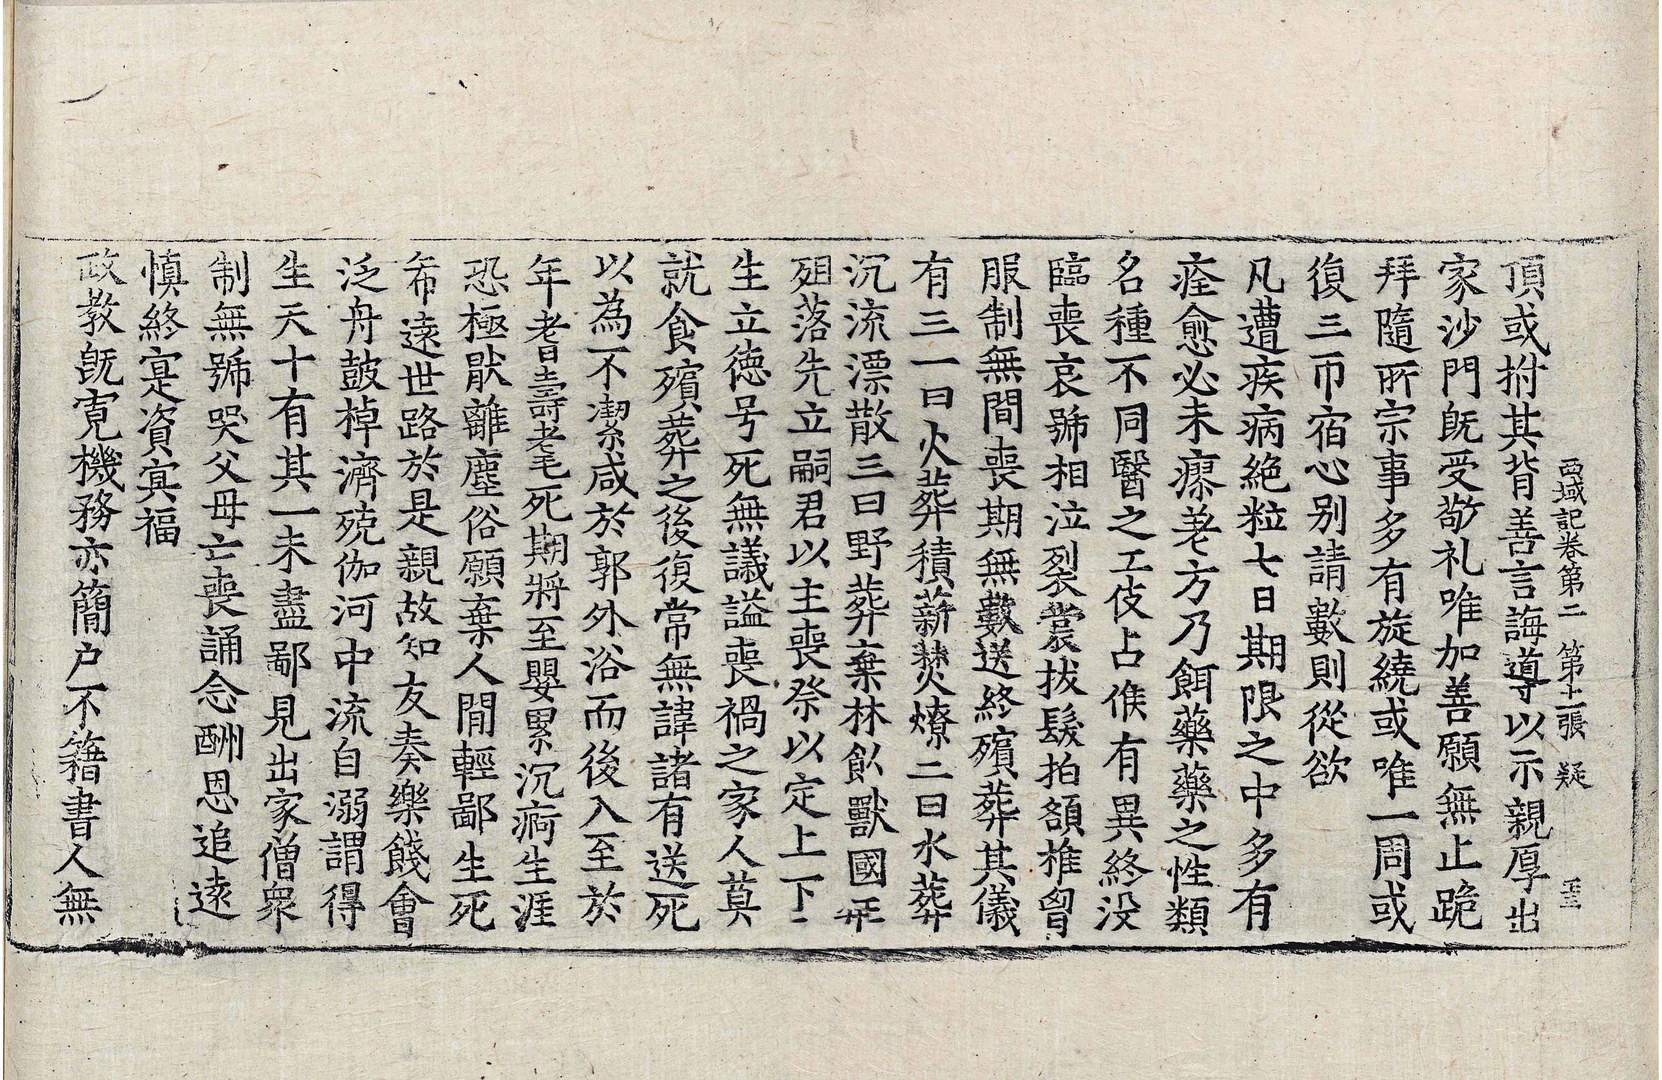 西域記卷第二 第十一張 疑
頂或拊其背善言誨導以示親厚出
家沙門旣受敬礼唯加善願無止跪
拜隨所宗事多有旋繞或唯一周或
復三帀宿心别請數則從欲
凡遭疾病絶粒七日期限之中多有
痊愈必未瘳差方乃餌藥藥之性類
名種不同醫之工伎占候有異終没
臨喪哀號相泣裂裳拔髮拍額椎胷
服制無間喪期無數送終殯葬其儀
有三一曰火葬積薪焚燎二曰水葬
沉流漂散三曰野葬棄林飤獸國王
殂落先立嗣君以主喪祭以定上下
生立德号死無議謚喪禍之家人莫
就食殯葬之後復常無諱諸有送死
以為不潔咸於郭外浴而後入至於
年耆壽耄死期將至嬰累沉痾生涯
恐極猒離塵俗願棄人間輕鄙生死
希遠世路於是親故知友奏樂餞會
泛舟鼓棹濟殑伽河中流自溺謂得
生天十有其一未盡鄙見出家僧衆
制無號哭父母亡喪誦念酬恩追遠
慎終寔資冥福
政教旣寬機務亦簡户不籍書人無